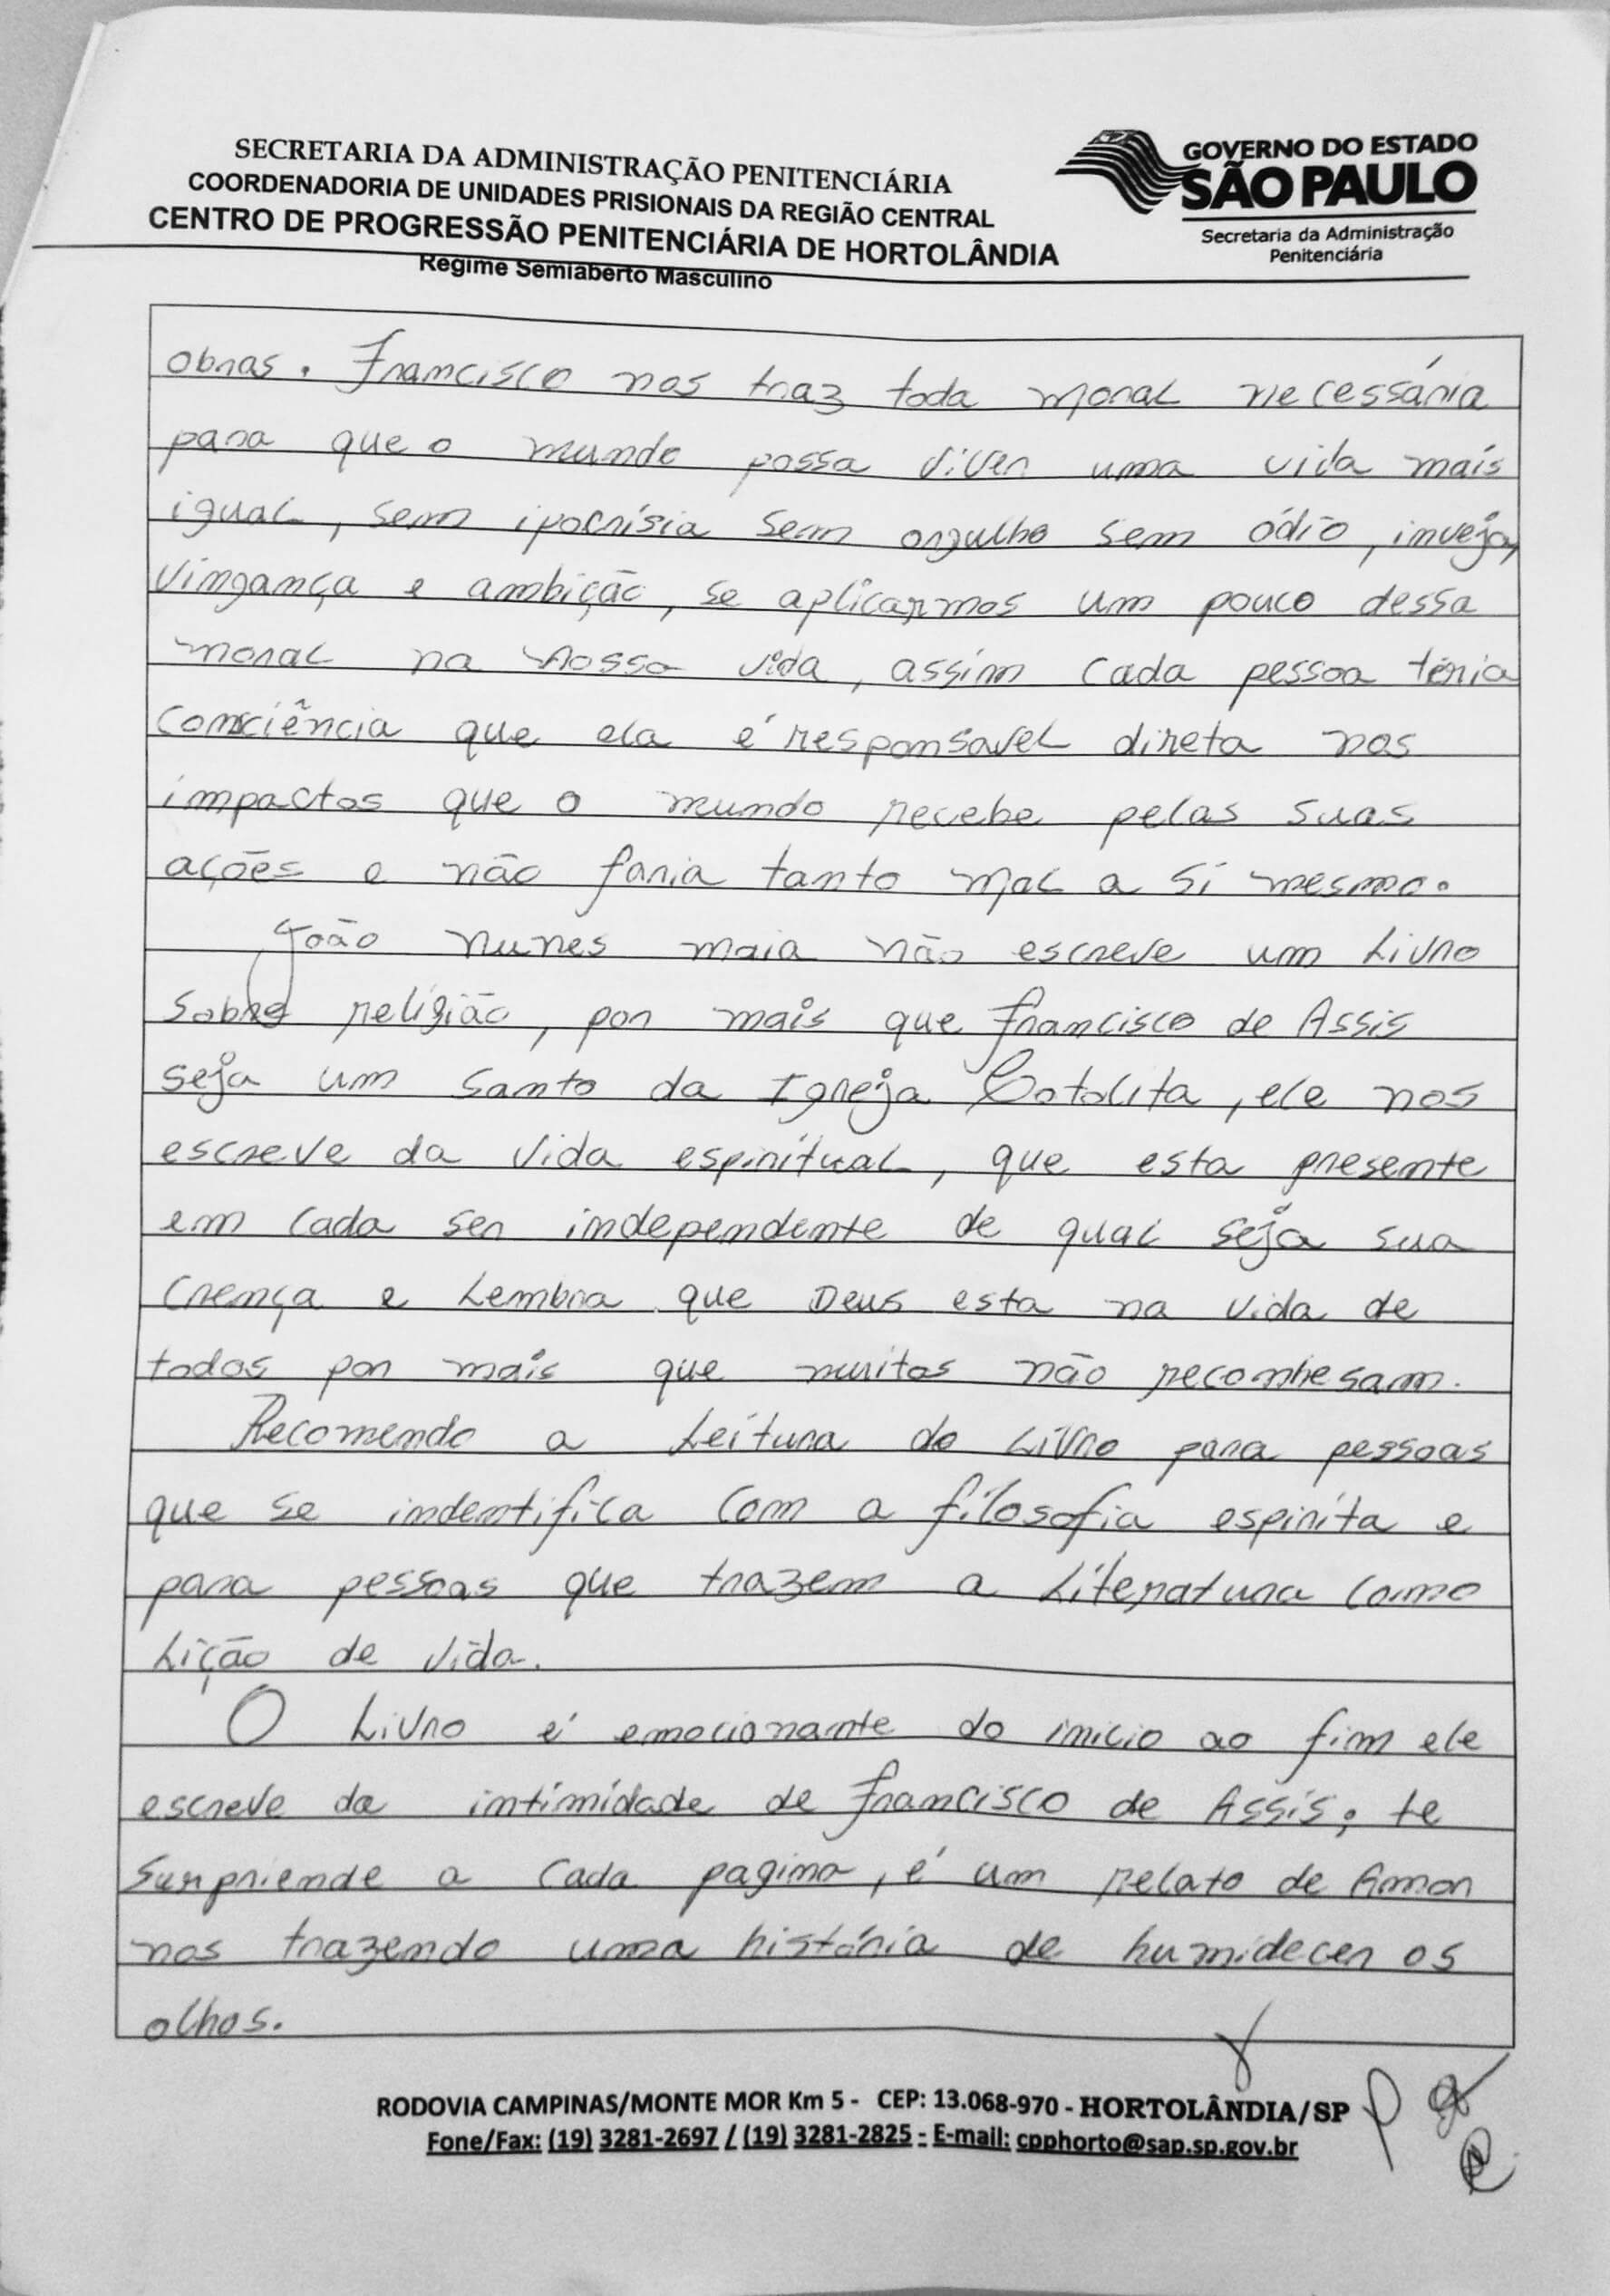 SECRETARIA DA ADMINISTRAÇÃO PENITENCIÁRIA
COORDENADORIA DE UNIDADES PRISIONAIS DA REGIÃO CENTRAL
CENTRO DE PROGRESSÃO PENITENCIÁRIA DE HORTOLÂNDIA
Regime Semiaberto Masculino
GOVERNO DO ESTADO
SÃO PAULO
Secretaria da Administração
Penitenciária
obras. Francisco nos traz toda moral necessária
para que o mundo possa viver uma vida mais
igual, sem ipocrisia sem orgulho sem ódio, inveja,
vingança e ambição, se aplicarmos um pouco dessa
moral na nossa vida, assim cada pessoa teria
consciência que ela é responsavel direta nos
impactos que o mundo recebe pelas suas
ações e não faria tanto mal a si mesmo.
João nunes maia não escreve um Livro
sobre religião, por mais que francisco de Assis
seja um santo da Igreja Catolita, ele nos
escreve da vida espiritual, que esta presente
em cada ser independente de qual seja sua
crença e Lembra que Deus esta na vida de
todos por mais que muitos não reconhesam.
Recomendo a Leitura do Livro para pessoas
que se indentifica com a filosofia espirita e
para pessoas que trazem a Literatura como
Lição de vida.
O Livro é emocionante do inicio ao fim ele
escreve da intimidade de francisco de Assis; te
surpriende a cada pagina, é um relato de Amor
nos trazendo uma história de humidecer os
olhos.
RODOVIA CAMPINAS/MONTE MOR Km 5 - CEP: 13.068-970 - HORTOLÂNDIA/SP
Fone/Fax: (19) 3281-2697 / (19) 3281-2825 - E-mail: cpphorto@sap.sp.gov.br